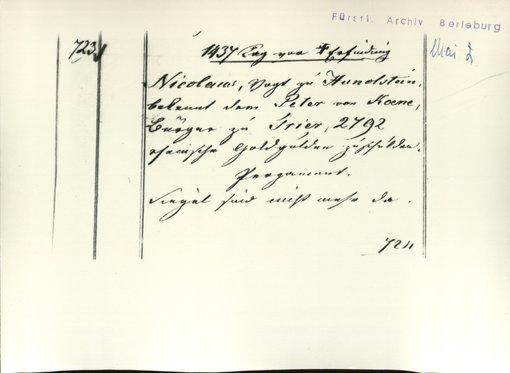 Fürstl. Archiv Berleburg
Mai 2
723
1437 Tag von † Erfindung
Nicolaus, Vogt zu Hunolstein,
bekennt dem Peter von Koene,
Bürger zu Trier, 2792
rheinische Goldgulden zu schulden.
Pergament.
Siegel sind nicht mehr da.
724